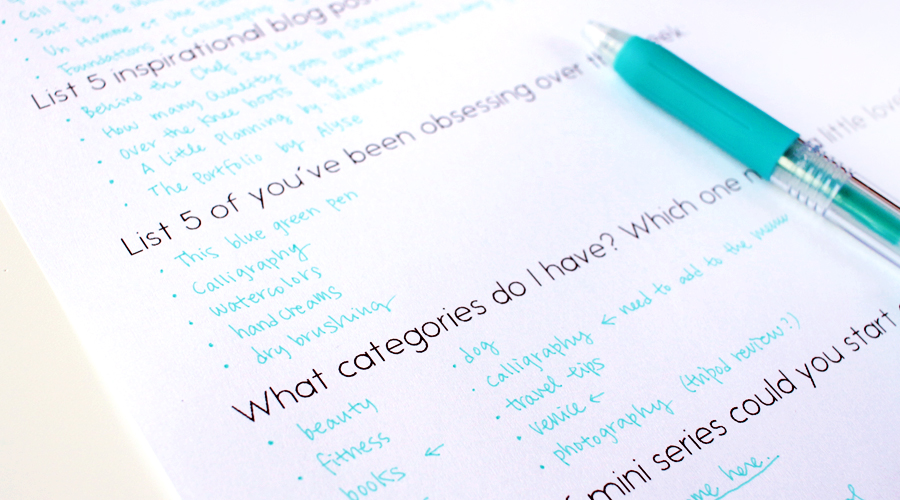 Call you
Salt by. &
Un Homme et une
Foundations of Calligraphy
List 5 inspirational blog pos
Behind the Chef: Roy Lee by Stephanie
How many Quality can you
Over the knee boots by Kathryn
A little Planning by
The Portfolio by Alyse
List 5 of you've been obsessing over
This blue green pen
Calligraphy
watercolors
handcreams
dry brushing
What categories do I have? Which one n a little love
beauty
fitness
books ←
dog
calligraphy ← need to add to the menu
travel tips
venice ←
photography (tripod review?)
mini series could you start
me here..